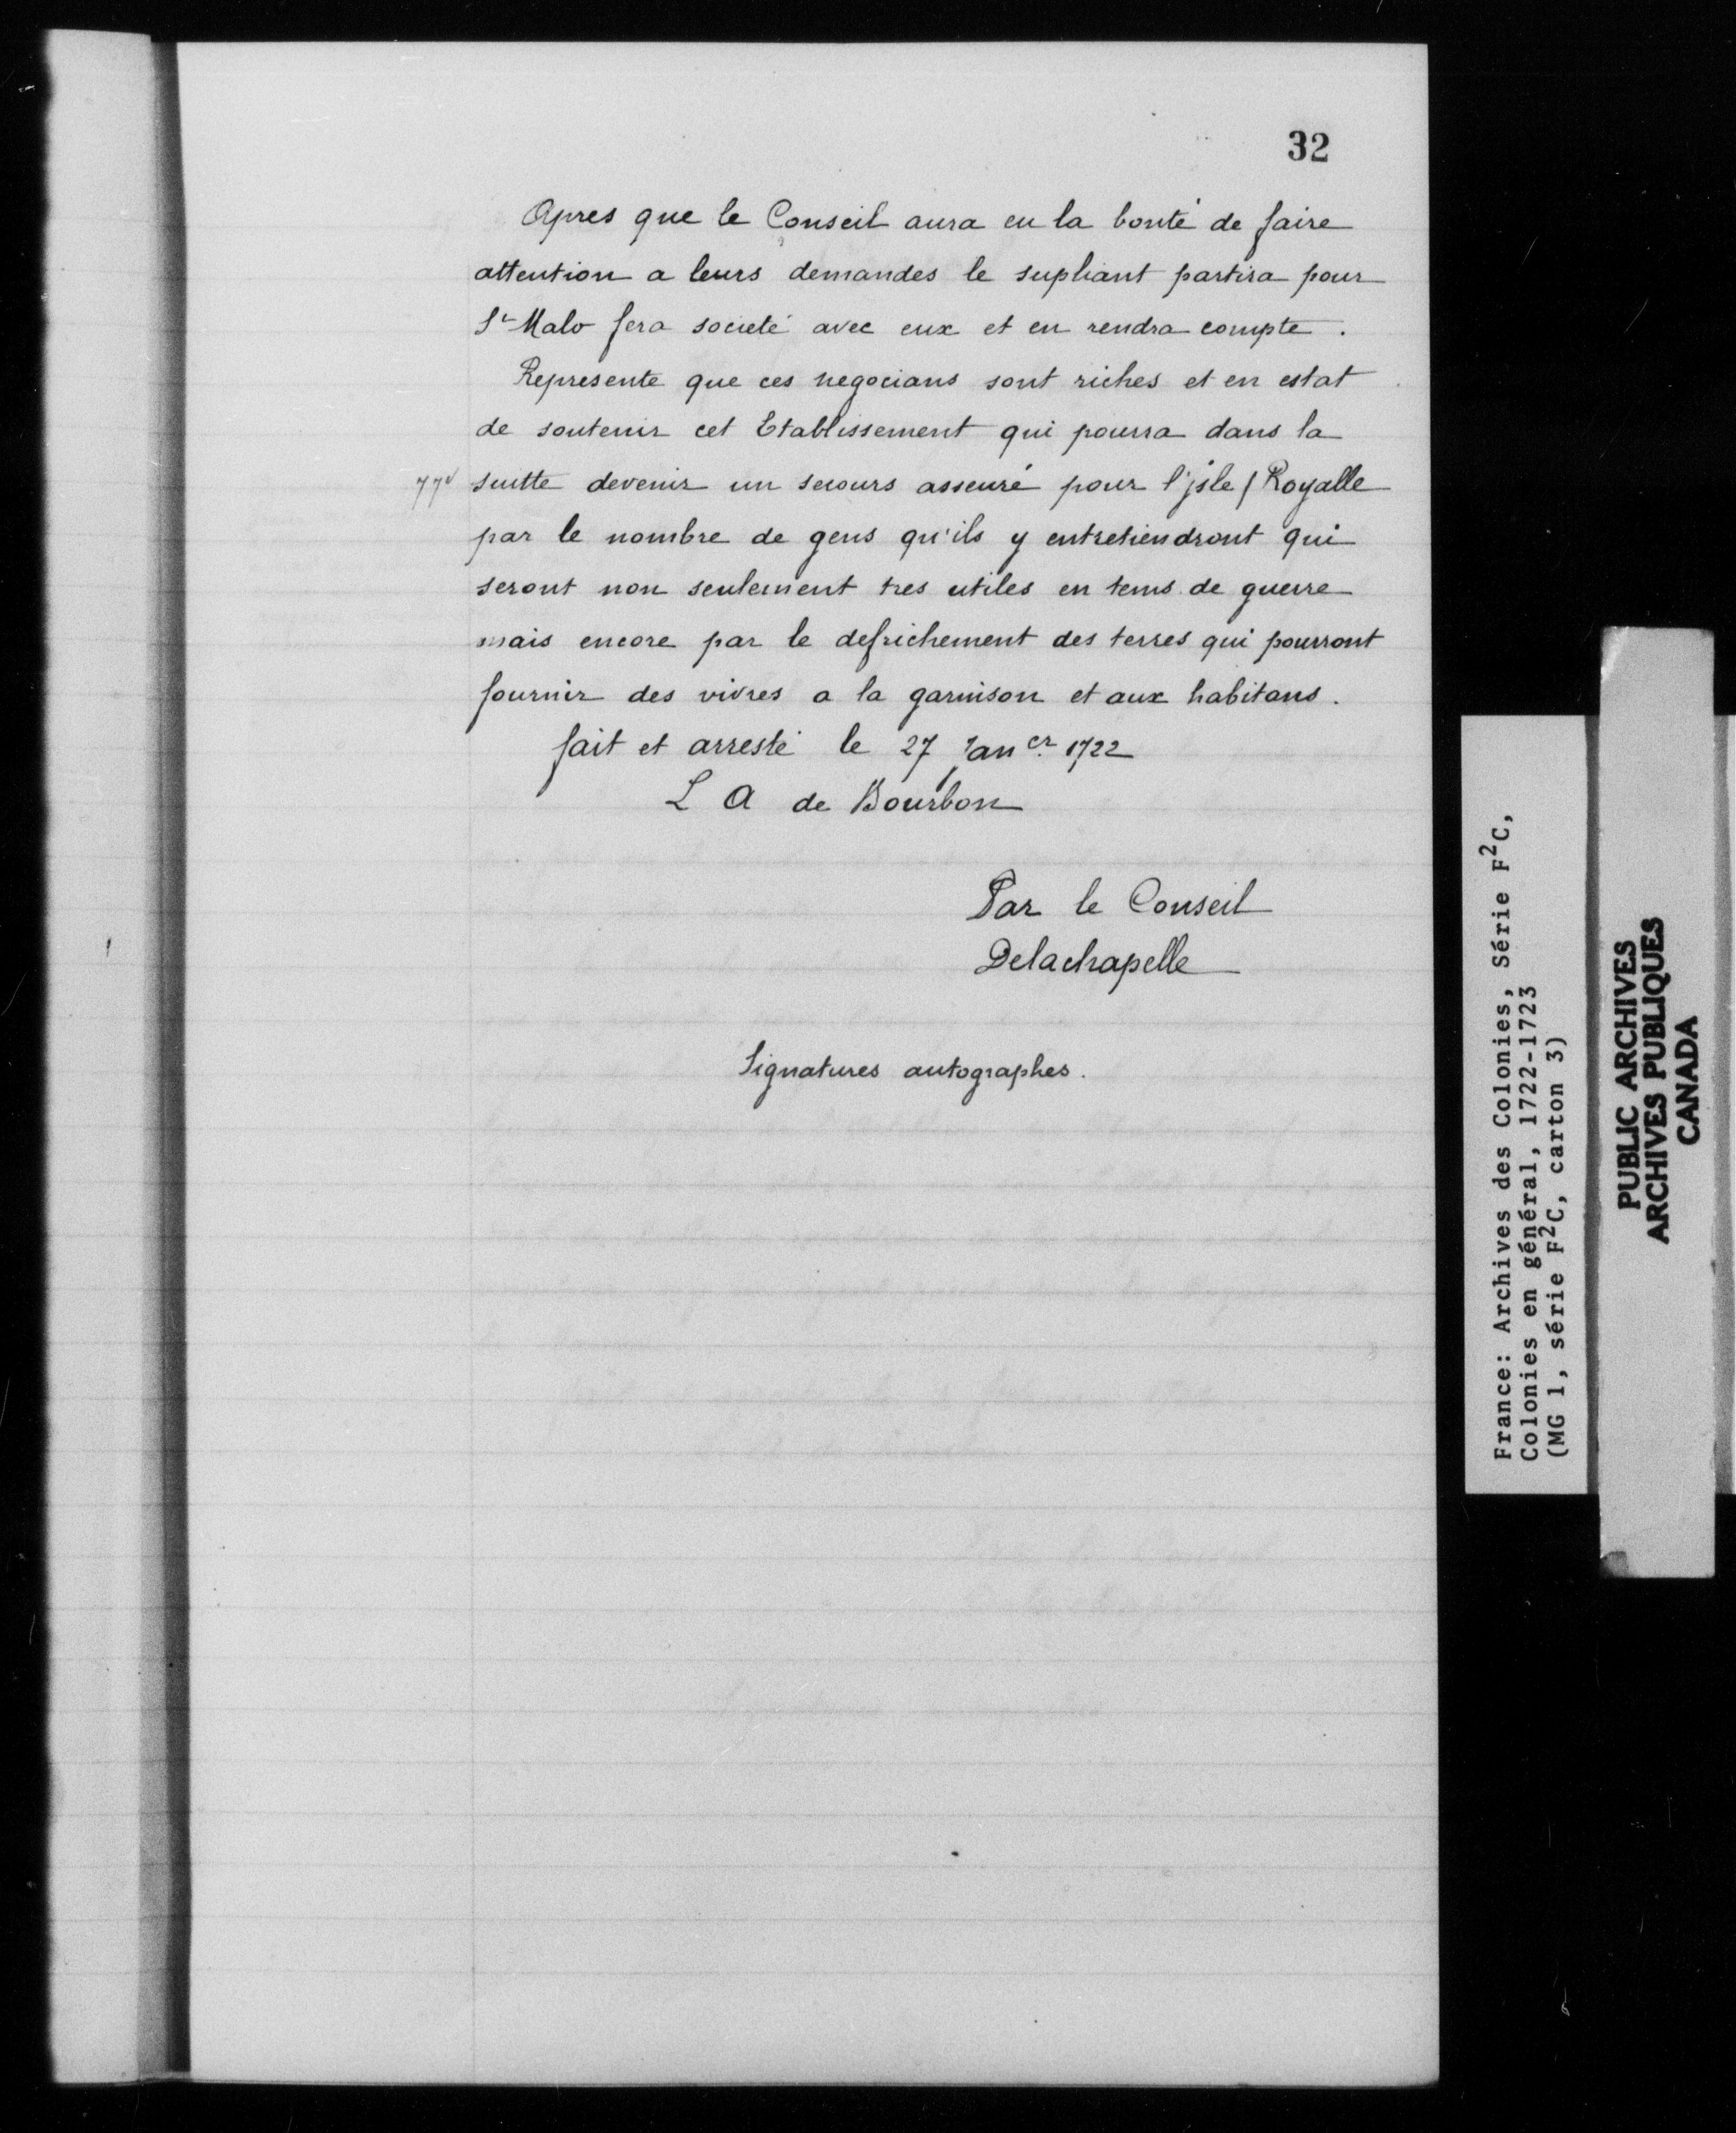 32
Apres que le Conseil aura eu la bonté de faire
attention a leurs demandes le supliant partira pour
St Malo fera societé avec eux et en rendra compte.
Represente que ces negocians sont riches et en estat
de soutenir cet Etablissement qui pourra dans la
77v suitte devenir un secours asseuré pour l'jsle / Royalle
par le nombre de gens qu'ils y entretiendront qui
seront non seulement tres utiles en tems de guerre
mais encore par le defrichement des terres qui pourront
fournir des vivres a la garnison et aux habitans.
fait et arresté le 27 Jan er 1722
L A de Bourbon
Par le Conseil
Delachapelle
Signatures autographes.
France: Archives des Colonies, Série F2C,
Colonies en général, 1722-1723
(MG 1, série F2C, carton 3)
PUBLIC ARCHIVES
ARCHIVES PUBLIQUES
CANADA